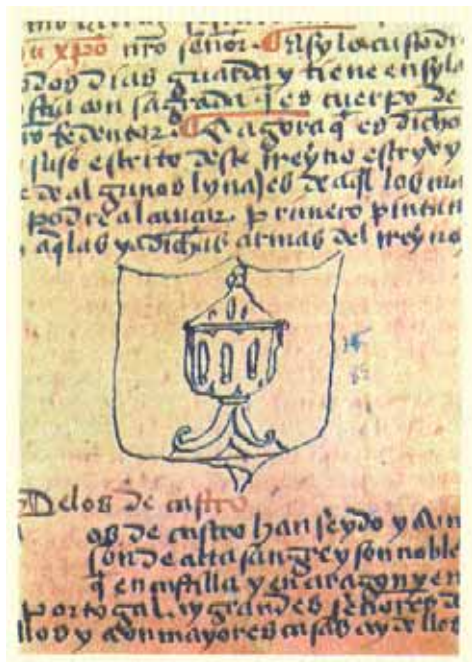 u xpo nro señor. Esy la custodi
odos dias guarda y tiene ensy la
stia con sagrada q es cuerpo de
ro redentor. E agora q es dicho
suso escrito deste rreyno estryvy
e de algunos lynajes de aql los ma
podre alcançar. primero pintan
aqlas ya dichas armas del rreyno
Delos de castro
os de castro han seydo y aun
son de alta sangre y son noble
q en castilla y en aragon y en
portogal. ay grandes señores d
llos y aun mayores casas ay dellos